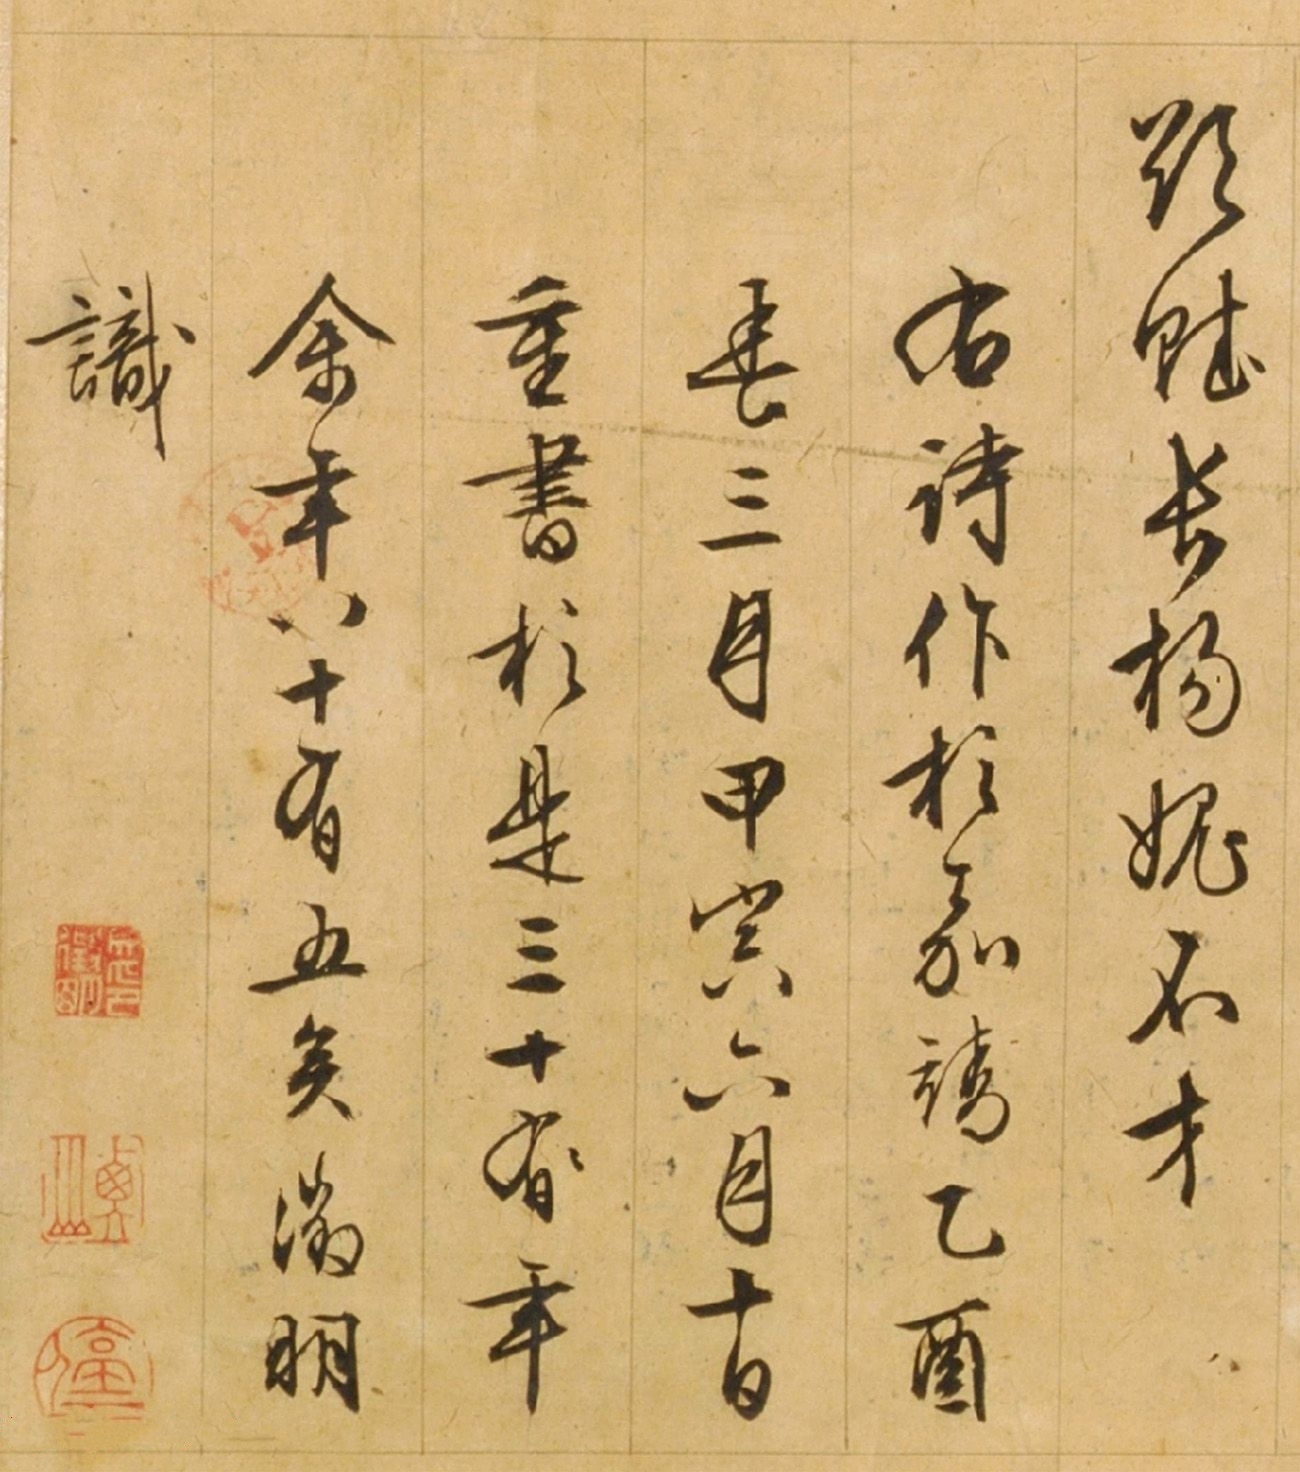 欲賦長楊媿不才
右詩作於嘉靖乙酉
春三月甲寅六月十日
重書於是三十有年
余年八十有五矣徵明
識